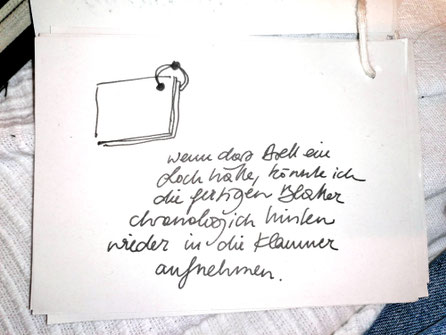 wenn das Bett ein
Loch hätte, könnte ich
die fertigen Blätter
chronologich hinten
wieder in die Klammer
aufnehmen.